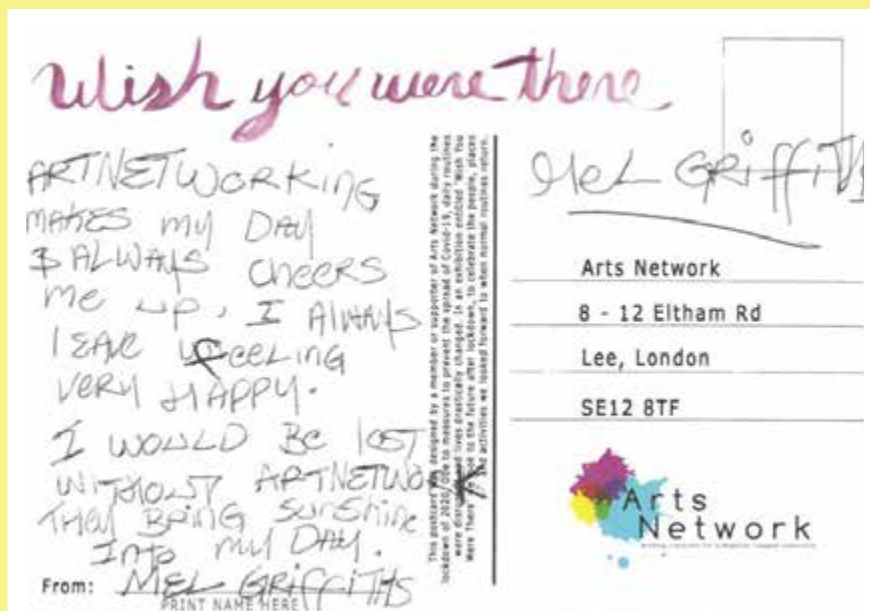 Wish you were there
ARTNETWORKING
MAKES MY DAY
& ALWAYS CHEERS
ME UP, I ALWAYS
LEAVE FEELING
VERY HAPPY.
I WOULD BE LOST
WITHOUT ARTNETWORK
THEY BRING SUNSHINE
INTO MY DAY.
From: MEL GRIFFITHS
PRINT NAME HERE
This postcard was designed by a member or supporter of Arts Network during the
lockdown of 2020. Due to measures to prevent the spread of Covid-19, daily routines
were and lives drastically changed. In an exhibition entitled 'Wish You
Were There' to the future after lockdown, to celebrate the people, places
and activities we looked forward to when normal routines return.
MEL GRIFFITHS
Arts Network
8 - 12 Eltham Rd
Lee, London
SE12 8TF
Arts
Network